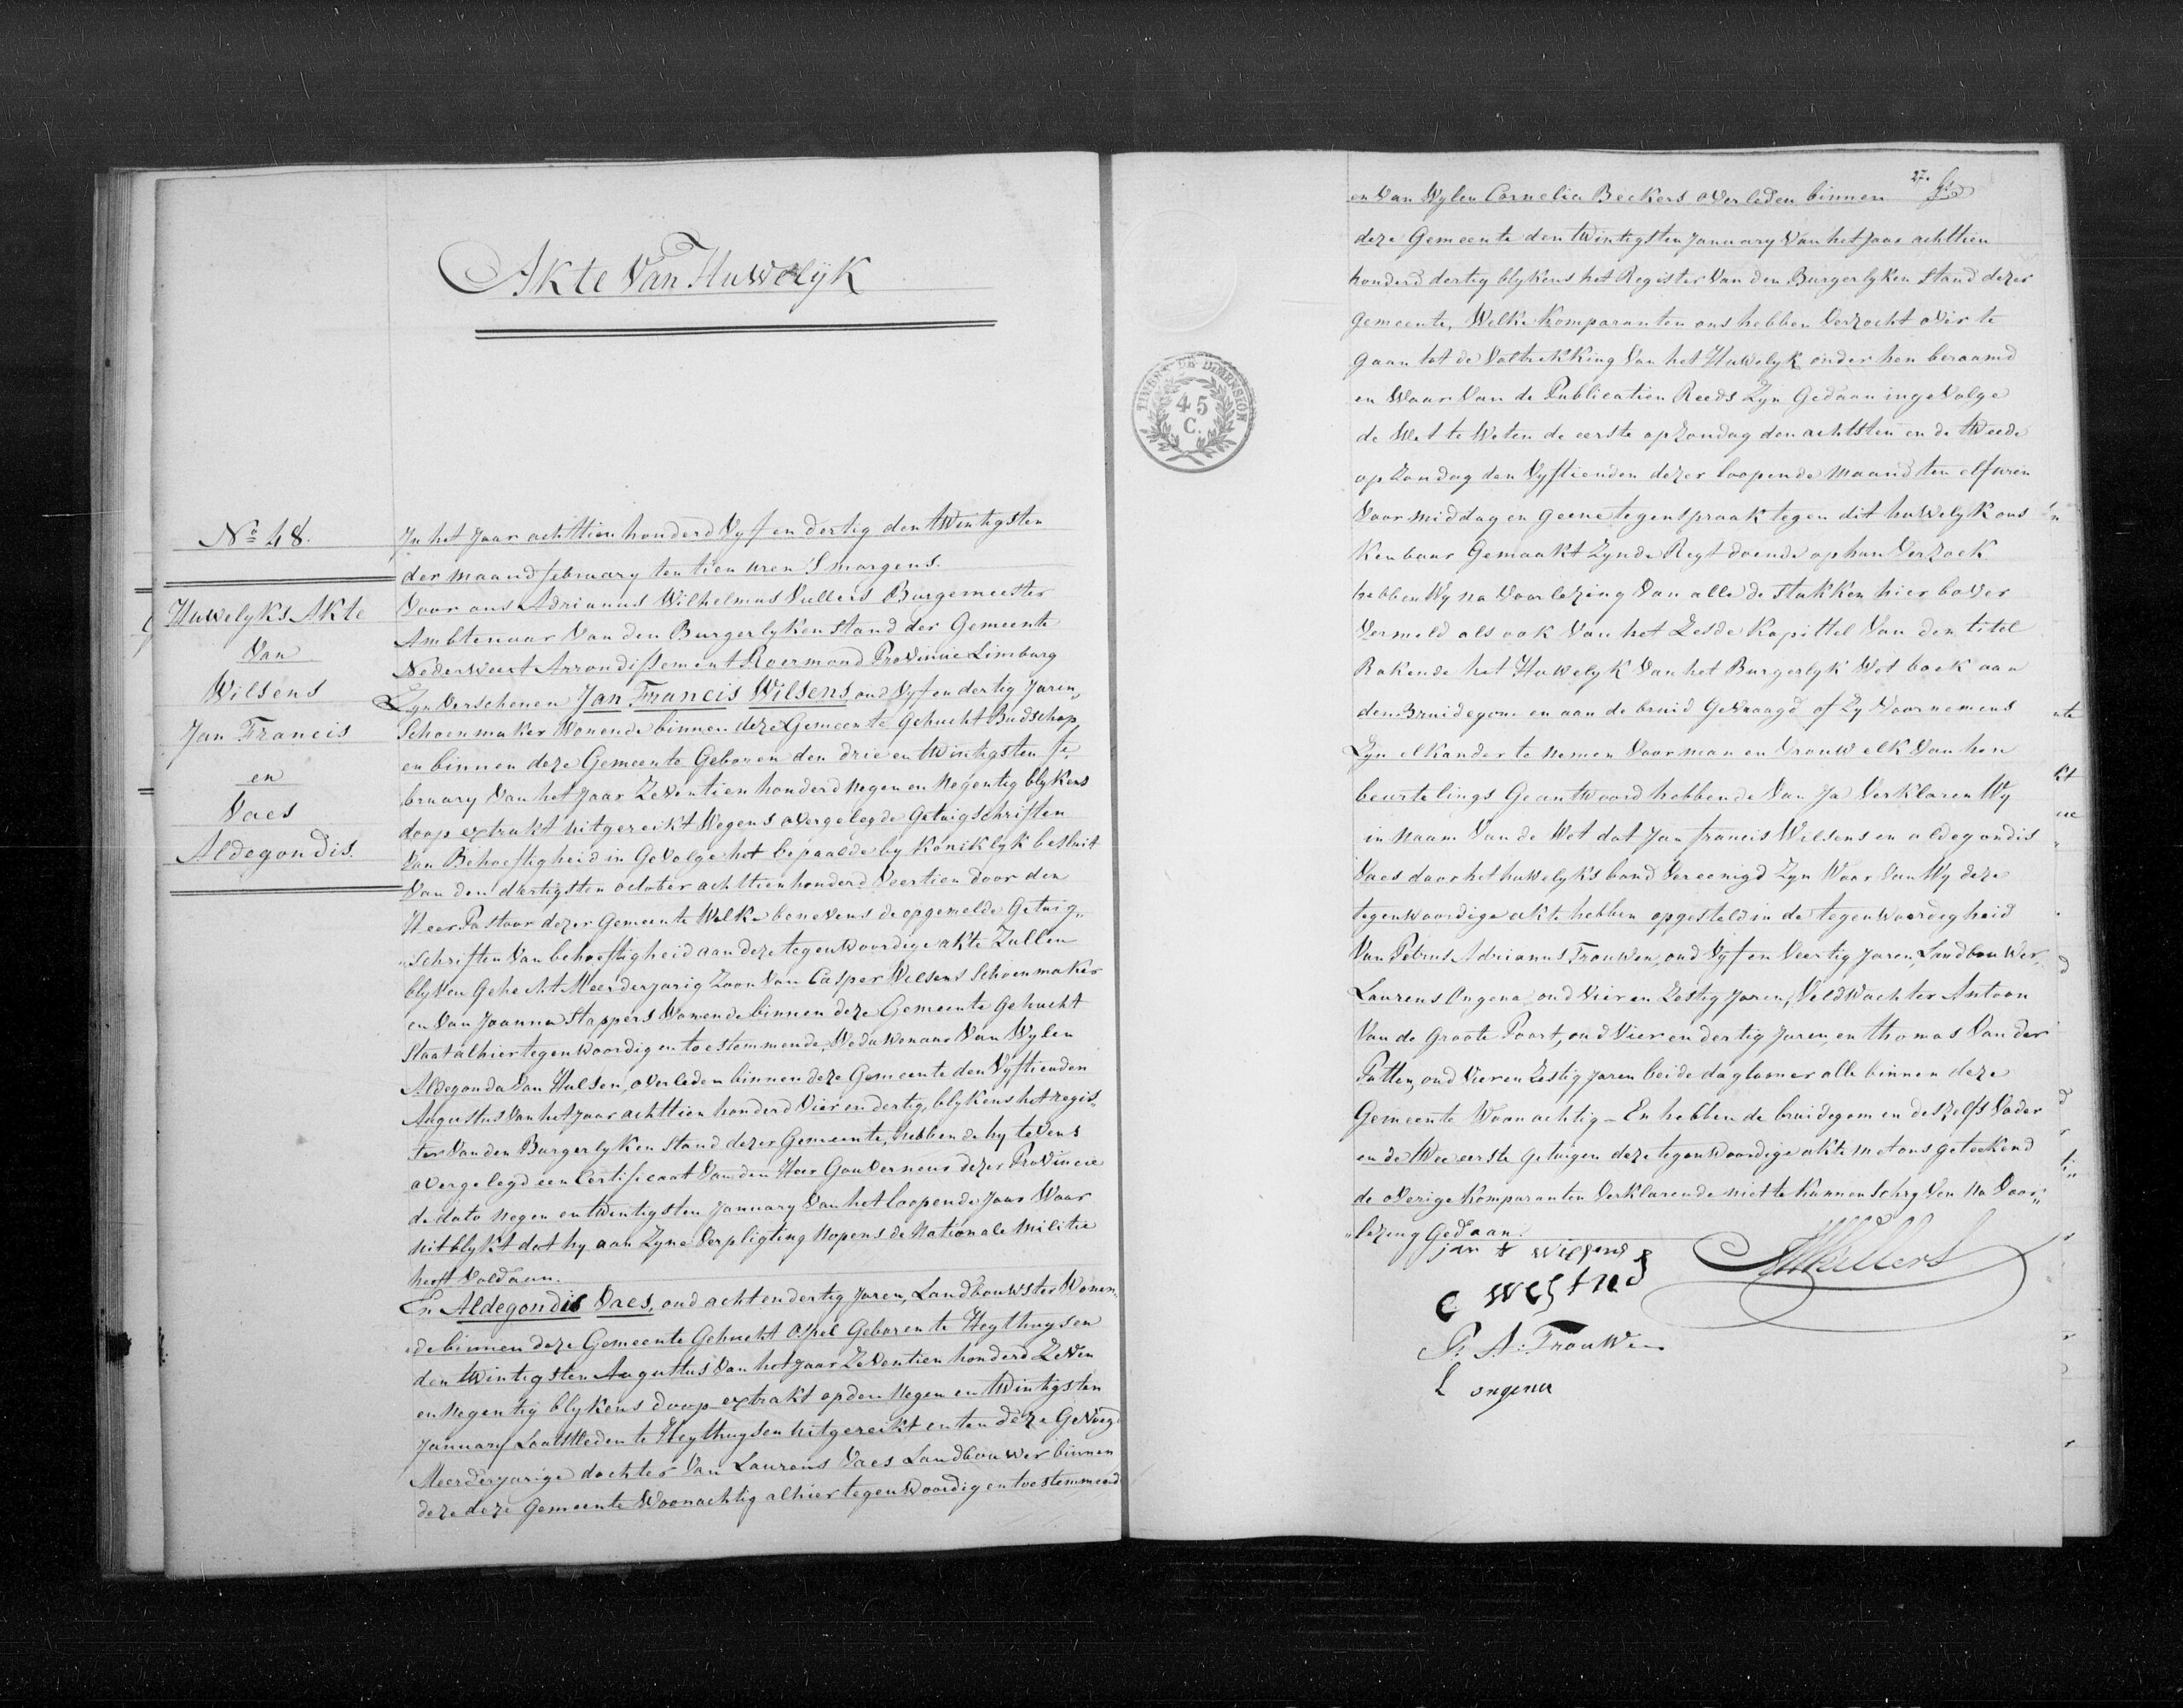 Akte Van Huwelyk
No 48.
Huwelyks Akte
Van
Wilsens
Jan Francis
en
Vaes
Aldegondis.
In het Jaar achttien honderd Vyf en dertig den twintigsten
der maand february ten tien uren S'morgens.
Voor ons Adrianus Wilhelmus Vullers Burgemeester
Ambtenaar Van den Burgerlyken stand der Gemeente
Nederweert Arrondissement Roermond Provincie Limburg
Zyn Verschenen Jan Francis Wilsens, oud Vyf en dertig Jaren,
Schoenmaker Wonende binnen deze Gemeente Gehucht Budschop
en binnen deze Gemeente Geboren den drie en twintigsten fe,
bruary Van het Jaar Zeventien honderd negen en Negentig blykens
doop extrakt uitgereikt Wegens overgelegde Getuigschriften
Van Behoeftigheid in Gevolge het bepaalde by Koniklyk besluit
Van den dertigsten october achttien honderd Veertien door den
Heer Pastoor dezer Gemeente Welke benevens de opgemelde Getuig,,
,,schriften Van behoeftigheid aan deze tegenwoordige akte Zullen
blyven Gehecht Meerderjarig Zoon Van Casper Wilsens Schoenmaker
en Van Joanna Stappers Wonende binnen deze Gemeente Gehucht
Staat alhier tegenwoordig en toestemmende, Weduwenaar Van Wylen
Aldegonda Van Hulsen, overleden binnen deze Gemeente den Vyftienden
Augustus Van het Jaar achttien honderd Vier en dertig, blykens het regis,,
ter Van den Burgerlyken stand dezer Gemeente, hebbende hy tevens
overgelegd een Certificaat Van den Heer Gouverneur dezer Provincie
de dato negen en twintigsten January Van het loopende Jaar Waar
uitblykt dat hy aan Zyne Verpligting Nopens de Nationale Militie
heeft Voldaan.
En Aldegondis Vaes, oud acht en dertig Jaren, Landbouwster Wonen,,
,,de binnen deze Gemeente Gehucht Ospel Geboren te Heythuysen
den twintigsten Augustus Van het Jaar Zeventien honderd Zeven
en Negentig blykens doop extrakt op den Negen en twintigsten
January Laatstleden te Heythuysen uitgereikt en ten deze Gevoegd
Meerderjarige dochter Van Laurens Vaes Landbouwer binnen
deze deze Gemeente Woonachtig alhier tegenwoordig en toestemmend
TIMBRE DE DIMENSION
45
C.
27.
en Van Wylen Cornelia Beckers overleden binnen
deze Gemeente den twintigsten January Van het Jaar achttien
honderd dertig blykens het Register Van den Burgerlyken stand dezer
Gemeente, Welke Komparanten ons hebben Verzocht over te
gaan tot de Voltrekking Van het Huwelyk onder hen beraamd
en Waar Van de Publication Reeds Zyn Gedaan ingevolge
de Wet te Weten de eerste op Zondag den achtsten en de tweede
op Zondag den Vyftienden dezer loopende maand ten elf uren
Voormiddag en geene tegenspraak tegen dit huwelyk ons
Kenbaar Gemaakt Zynde Regt doende op hun Verzoek
hebben Wy na Voorlezing Van alle de stukken hier boven
Vermeld als ook Van het Zesde Kapittel Van den titel
Rakende het Huwelyk Van het Burgerlyk Wet boek aan
den Bruidegom en aan de bruid Gevraagd of Zy Voornemens
Zyn elkander te nemen Voor man en Vrouw elk Van hen
beurtelings Geantwoord hebbende Van Ja Verklaren Wy
in naam Van de Wet dat Jan francis Wilsens en aldegondis
Vaes door het huwelyks band Vereenigd Zyn Waar Van Wy deze
tegenwoordige akte hebben opgesteld in de tegenwoordigheid
Van Petrus Adrianus Trouwen, oud Vyf en Veertig Jaren, Landbouwer,
Laurens Ongena, oud Vier en Zestig Jaren, Veldwachter Antoon
Van de Groote Poort, oud Vier en dertig Jaren, en thomas Van der
Putten, oud Vier en Zestig Jaren beide dagloner alle binnen deze
Gemeente Woonachtig – En hebben de bruidegom en deszelfs Vader
en de twee eerste getuigen deze tegenwoordige akte met ons geteekend
de overige Komparanten Verklarende niet te Kunnen Schryven na Voor,,
,,lezing Gedaan.
P. A: Trouwen
L ongena